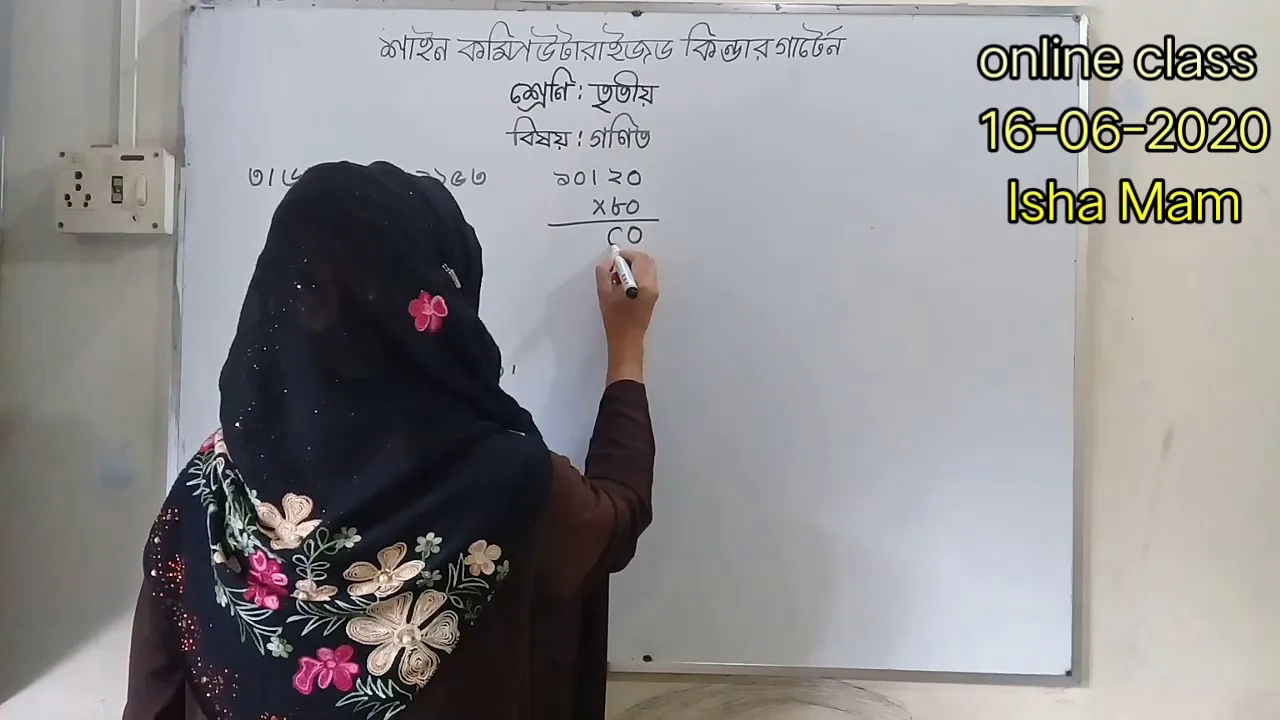 শাইন কমিপউটারাইজড কিন্ডার গার্টেন
শ্রেণি : তৃতীয়
বিষয় : গণিত
৯০১২০
×৮০
০
online class
16-06-2020
Isha Mam